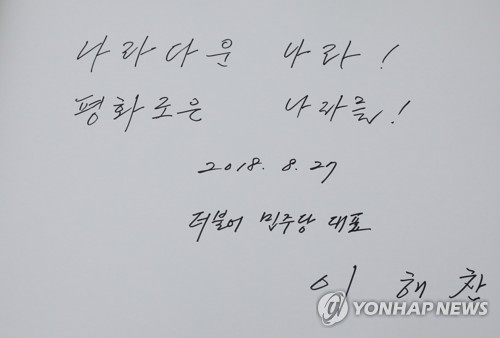 나라다운 나라!
평화로운 나라를!
2018. 8. 27
더불어 민주당 대표
이 해 찬
YONHAP NEWS